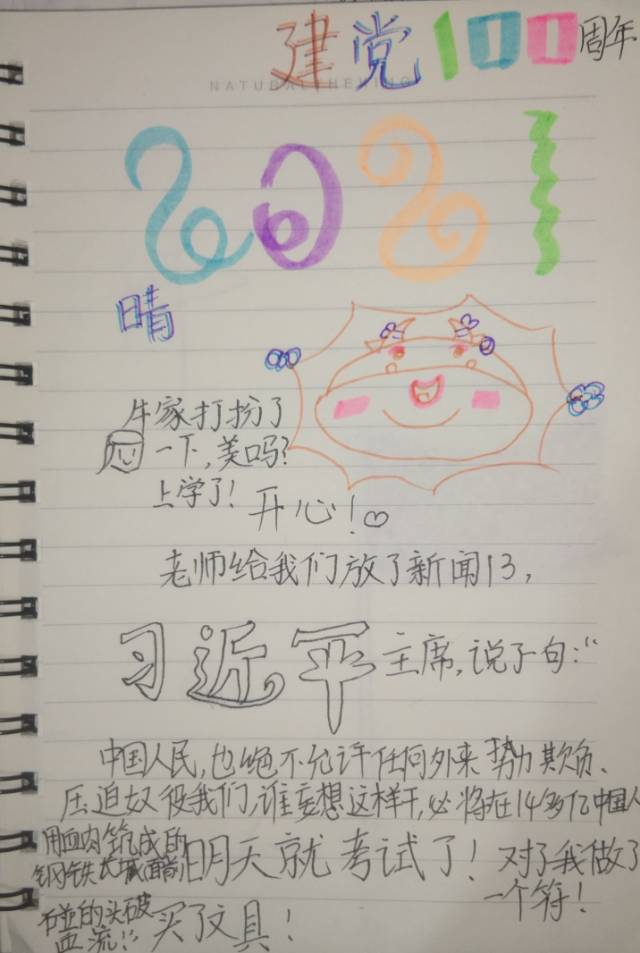 建党100周年
NATURAL
2021
晴
牛家打扮了
一下,美吗?
上学了! 开心!
老师给我们放了新闻13,
习近平主席,说了一句:“
中国人民,也绝不允许任何外来势力欺负、
压迫奴役我们,谁妄想这样干,必将在14多亿中国人
用血肉筑成的
钢铁长城面前
碰的头破
血流!!
明天就考试了!对了我做了
一个符!
买了文具!